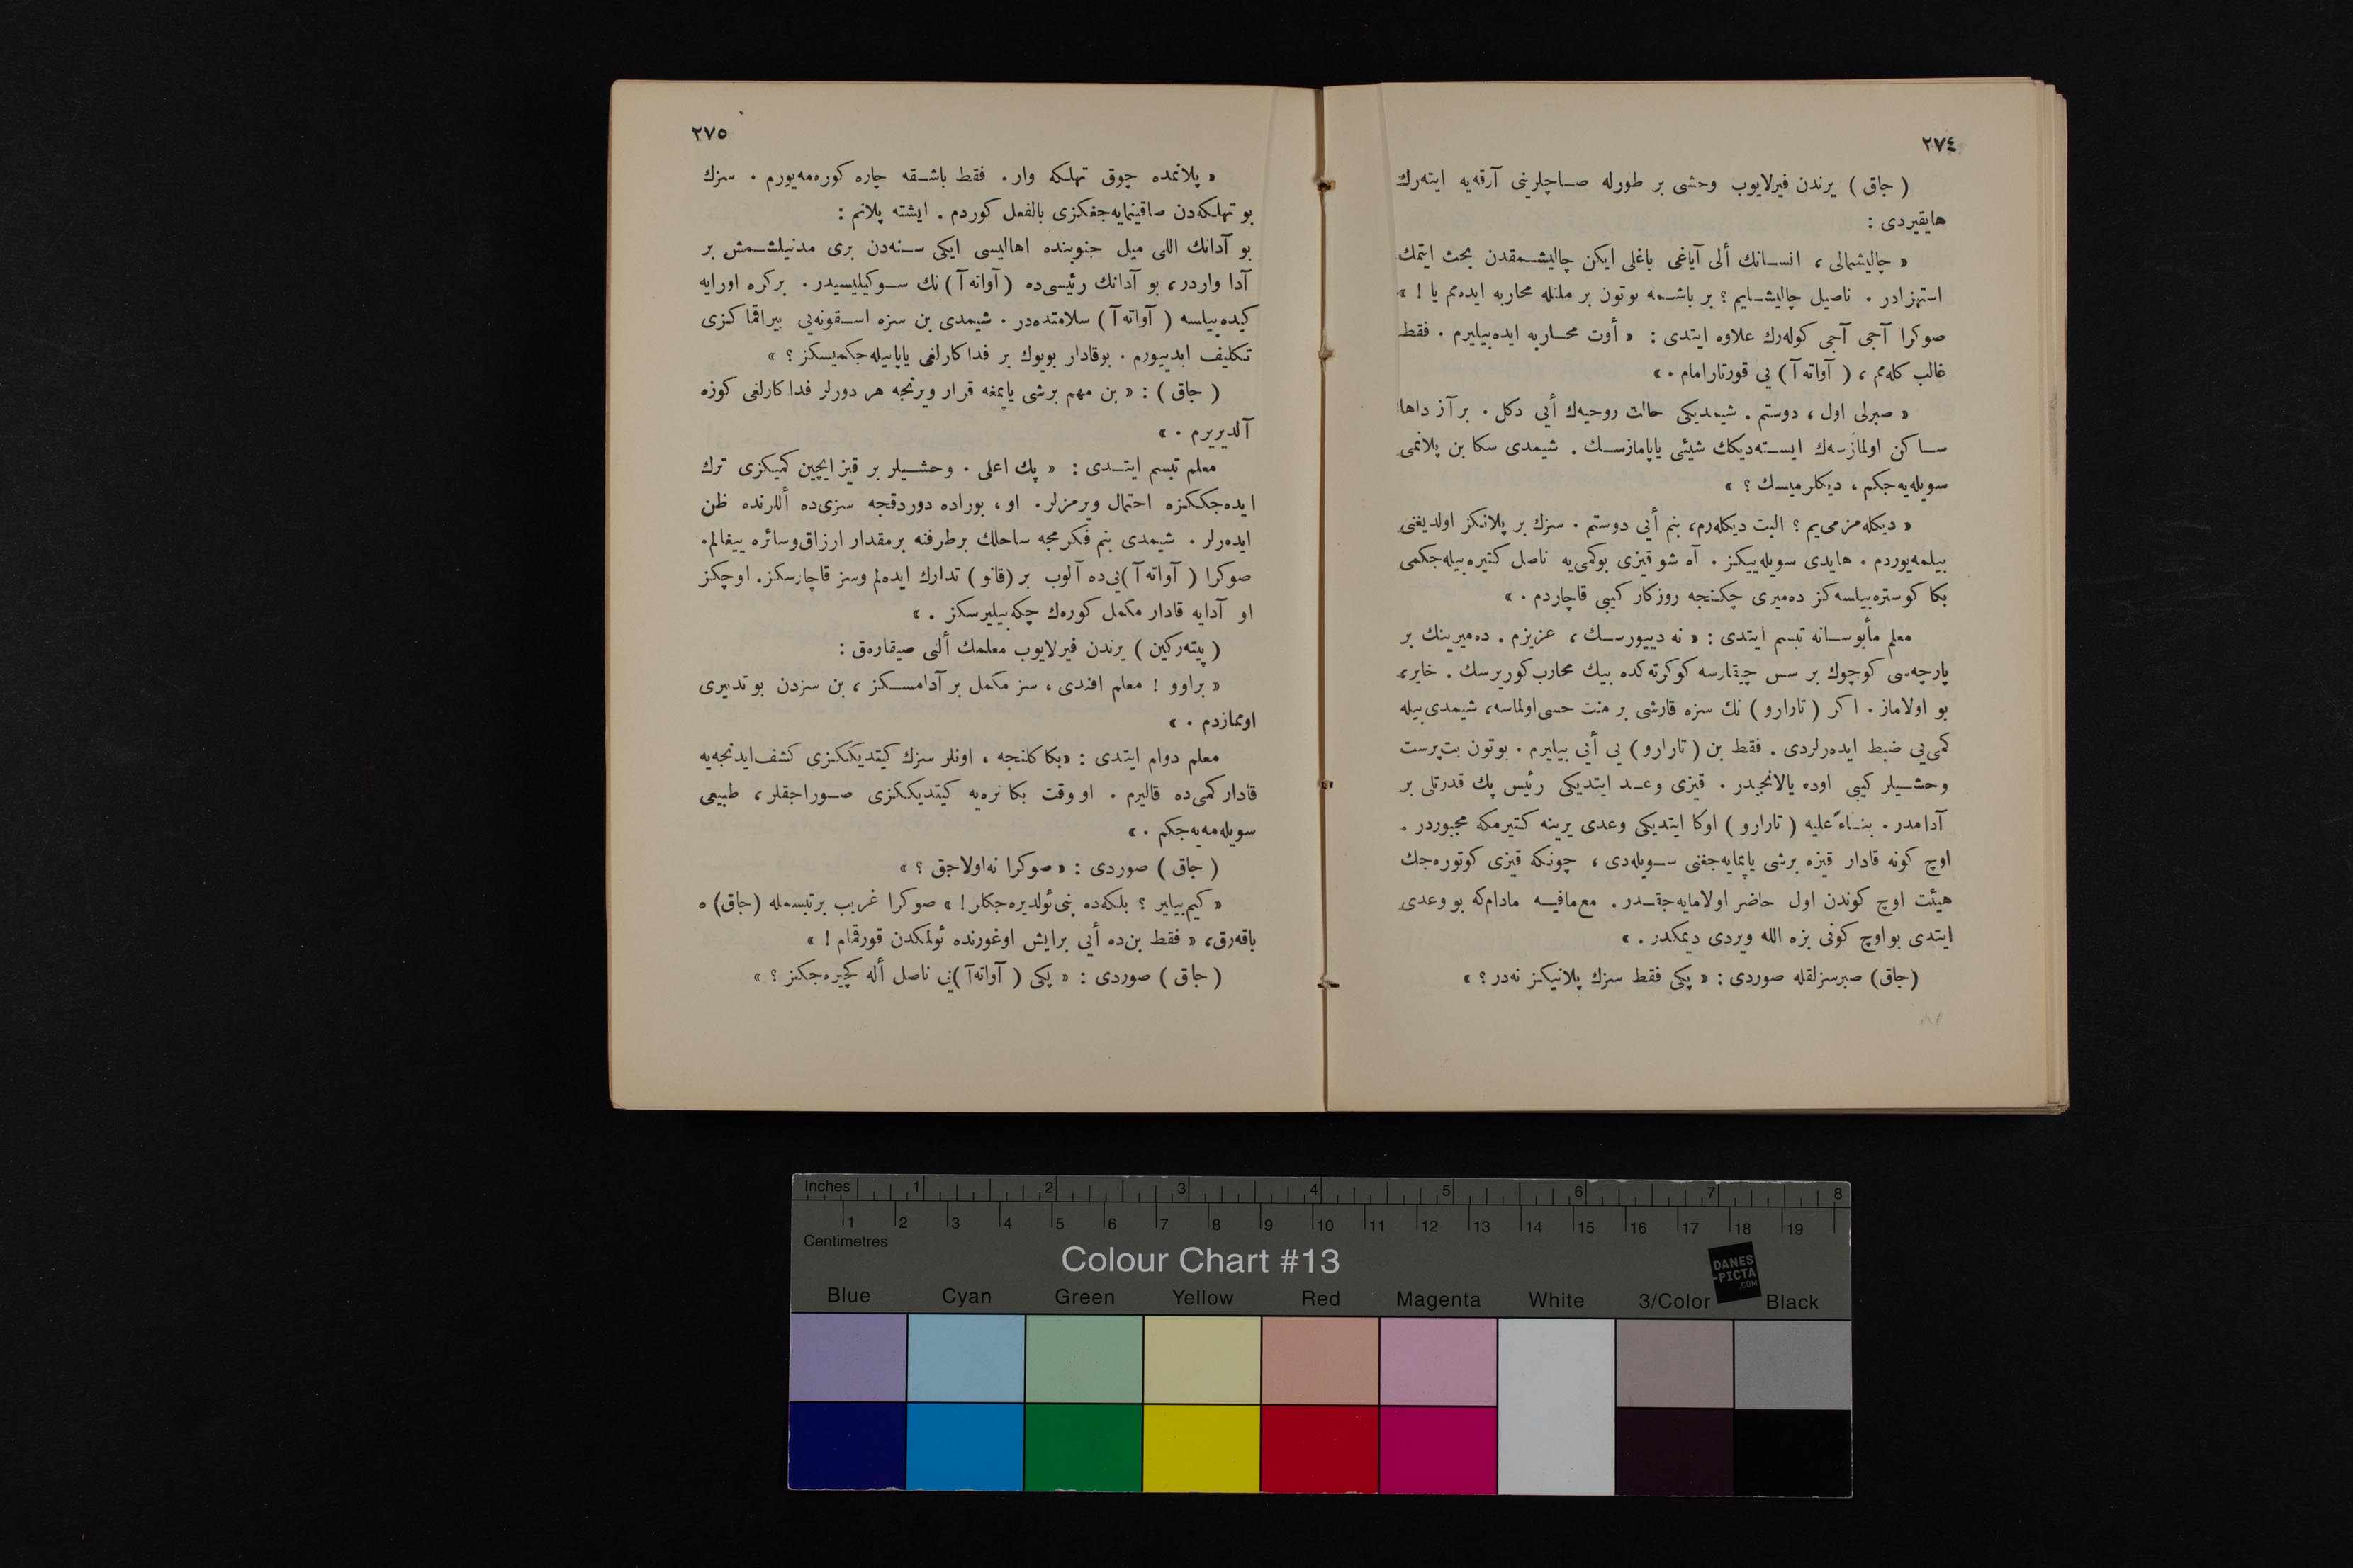 ٢٧٤
( جاق ) يرندن فيرلايوب وحشى بر طورله صاچلرينى آرقه‌يه ايته‌رك
هايقيردى :
« چاليشمالى ، انسانك ألى آياغى باغلى ايكن چاليشمقدن بحث ايتمك
استهزادر . ناصيل چاليشايم ؟ بر باشمه بوتون بر ملتله محاربه ايده‌مم يا ! »
صوكرا آجى آجى كوله‌رك علاوه ايتدى : « أوت محاربه ايده‌بيليرم . فقط
غالب كله‌مم ، ( آواته‌آ ) يى قورتارامام . »
« صبرلى اول ، دوستم . شيمديكى حالت روحيه‌ك أيى دكل . بر آز داها
ساكن اولمازسه‌ك ايسته‌ديكك شيئى ياپامازسك . شيمدى سكا بن پلانمى
سويله‌يه‌جكم ، ديكلرميسك ؟ »
« ديكله‌مزمى‌يم ؟ البت ديكله‌رم، بنم أيى دوستم . سزك بر پلانكز اولديغنى
بيلمه‌يوردم . هايدى سويله‌ييكز . آه شو قيزى بوكمى‌يه ناصل كتيره‌بيله‌جكمى
بكا كوستره‌بيلسه‌كز ده‌ميرى چكنجه روزكار كيبى قاچاردم . »
معلم مأيوسانه تبسم ايتدى : « نه دييورسك ، عزيزم . ده‌ميرينك بر
پارچه‌سى كوچوك بر سس چيقارسه كوكرته‌كده بيك محارب كوريرسك . خاير،
بو اولاماز . اكر ( تارارو ) نك سزه قارشى بر منت حسى اولماسه، شيمدى‌بيله
كمى‌يى ضبط ايده‌رلردى . فقط بن ( تارارو ) يى أيى بيليرم . بوتون بت‌پرست
وحشيلر كيبى اوده يالانجيدر . قيزى وعد ايتديكى رئيس پك قدرتلى بر
آدامدر . بناءً عليه ( تارارو ) اوكا ايتديكى وعدى يرينه كتيرمكه مجبوردر .
اوچ كونه قادار قيزه برشى ياپمايه‌جغنى سويله‌دى ، چونكه قيزى كوتوره‌جك
هيئت اوچ كوندن اول حاضر اولامايه‌جقدر . مع‌مافيه مادام‌كه بو وعدى
ايتدى بواوچ كونى بزه الله ويردى ديمكدر . »
(جاق) صبرسزلقله صوردى : « پكى فقط سزك پلانيكز نه‌در ؟ »
٢٧٥
« پلانمده چوق تهلكه وار . فقط باشقه چاره كوره‌مه‌يورم . سزك
بو تهلكه‌دن صاقينمايه‌جغكزى بالفعل كوردم . ايشته پلانم :
بو آدانك اللى ميل جنوبنده اهاليسى ايكى سنه‌دن برى مدنيلشمش بر
آدا واردر، بو آدانك رئيسى‌ده ( آواته‌آ ) نك سوكيليسيدر . بركره اورايه
كيده‌بيلسه ( آواته‌آ ) سلامتده‌در . شيمدى بن سزه اسقونه‌يى بيراقماكزى
تكليف ايدييورم . بوقادار بويوك بر فداكارلغى ياپابيله‌جكميسكز ؟ »
( جاق ) : « بن مهم برشى ياپمغه قرار ويرنجه هر دورلر فداكارلغى كوزه
آلديريرم . »
معلم تبسم ايتدى : « پك اعلى . وحشيلر بر قيز ايچين كميكزى ترك
ايده‌جككزه احتمال ويرمزلر . او ، بوراده دوردقجه سزى‌ده أللرنده ظن
ايده‌رلر . شيمدى بنم فكرمجه ساحلك برطرفنه برمقدار ارزاق‌وسائره ييغالم .
صوكرا ( آواته‌آ )يى‌ده آلوب بر (قانو ) تدارك ايده‌لم وسز قاچارسكز. اوچكز
او آدايه قادار مكمل كوره‌ك چكه‌بيليرسكز . »
( پيته‌ركين ) يرندن فيرلايوب معلمك ألنى صيقارق :
« براوو ! معلم افندى ، سز مكمل بر آدامسكز ، بن سزدن بو تدبيرى
اومازدم . »
معلم دوام ايتدى : «بكا كلنجه ، اونلر سزك كيتديككزى كشف‌ايدنجه‌يه
قادار كمى‌ده قاليرم . او وقت بكا نره‌يه كيتديككزى صوراجقلر ، طبيعى
سويله‌مه‌يه‌جكم . »
( جاق ) صوردى : « صوكرا نه‌اولاجق ؟ »
« كيم‌بيلير ؟ بلكه‌ده بنى ئولديره‌جكلر ! » صوكرا غريب برتبسمله (جاق) ه
باقه‌رق، « فقط بن‌ده أيى برايش اوغورنده ئولمكدن قورقمام ! »
( جاق ) صوردى : « پكى ( آواته‌آ )يى ناصل أله كچيره‌جكز ؟ »
Inches 1 2 3 4 5 6 7 8
1 2 3 4 5 6 7 8 9 10 11 12 13 14 15 16 17 18 19
Centimetres
Colour Chart #13
DANES
-PICTA
.COM
Blue Cyan Green Yellow Red Magenta White 3/Color Black